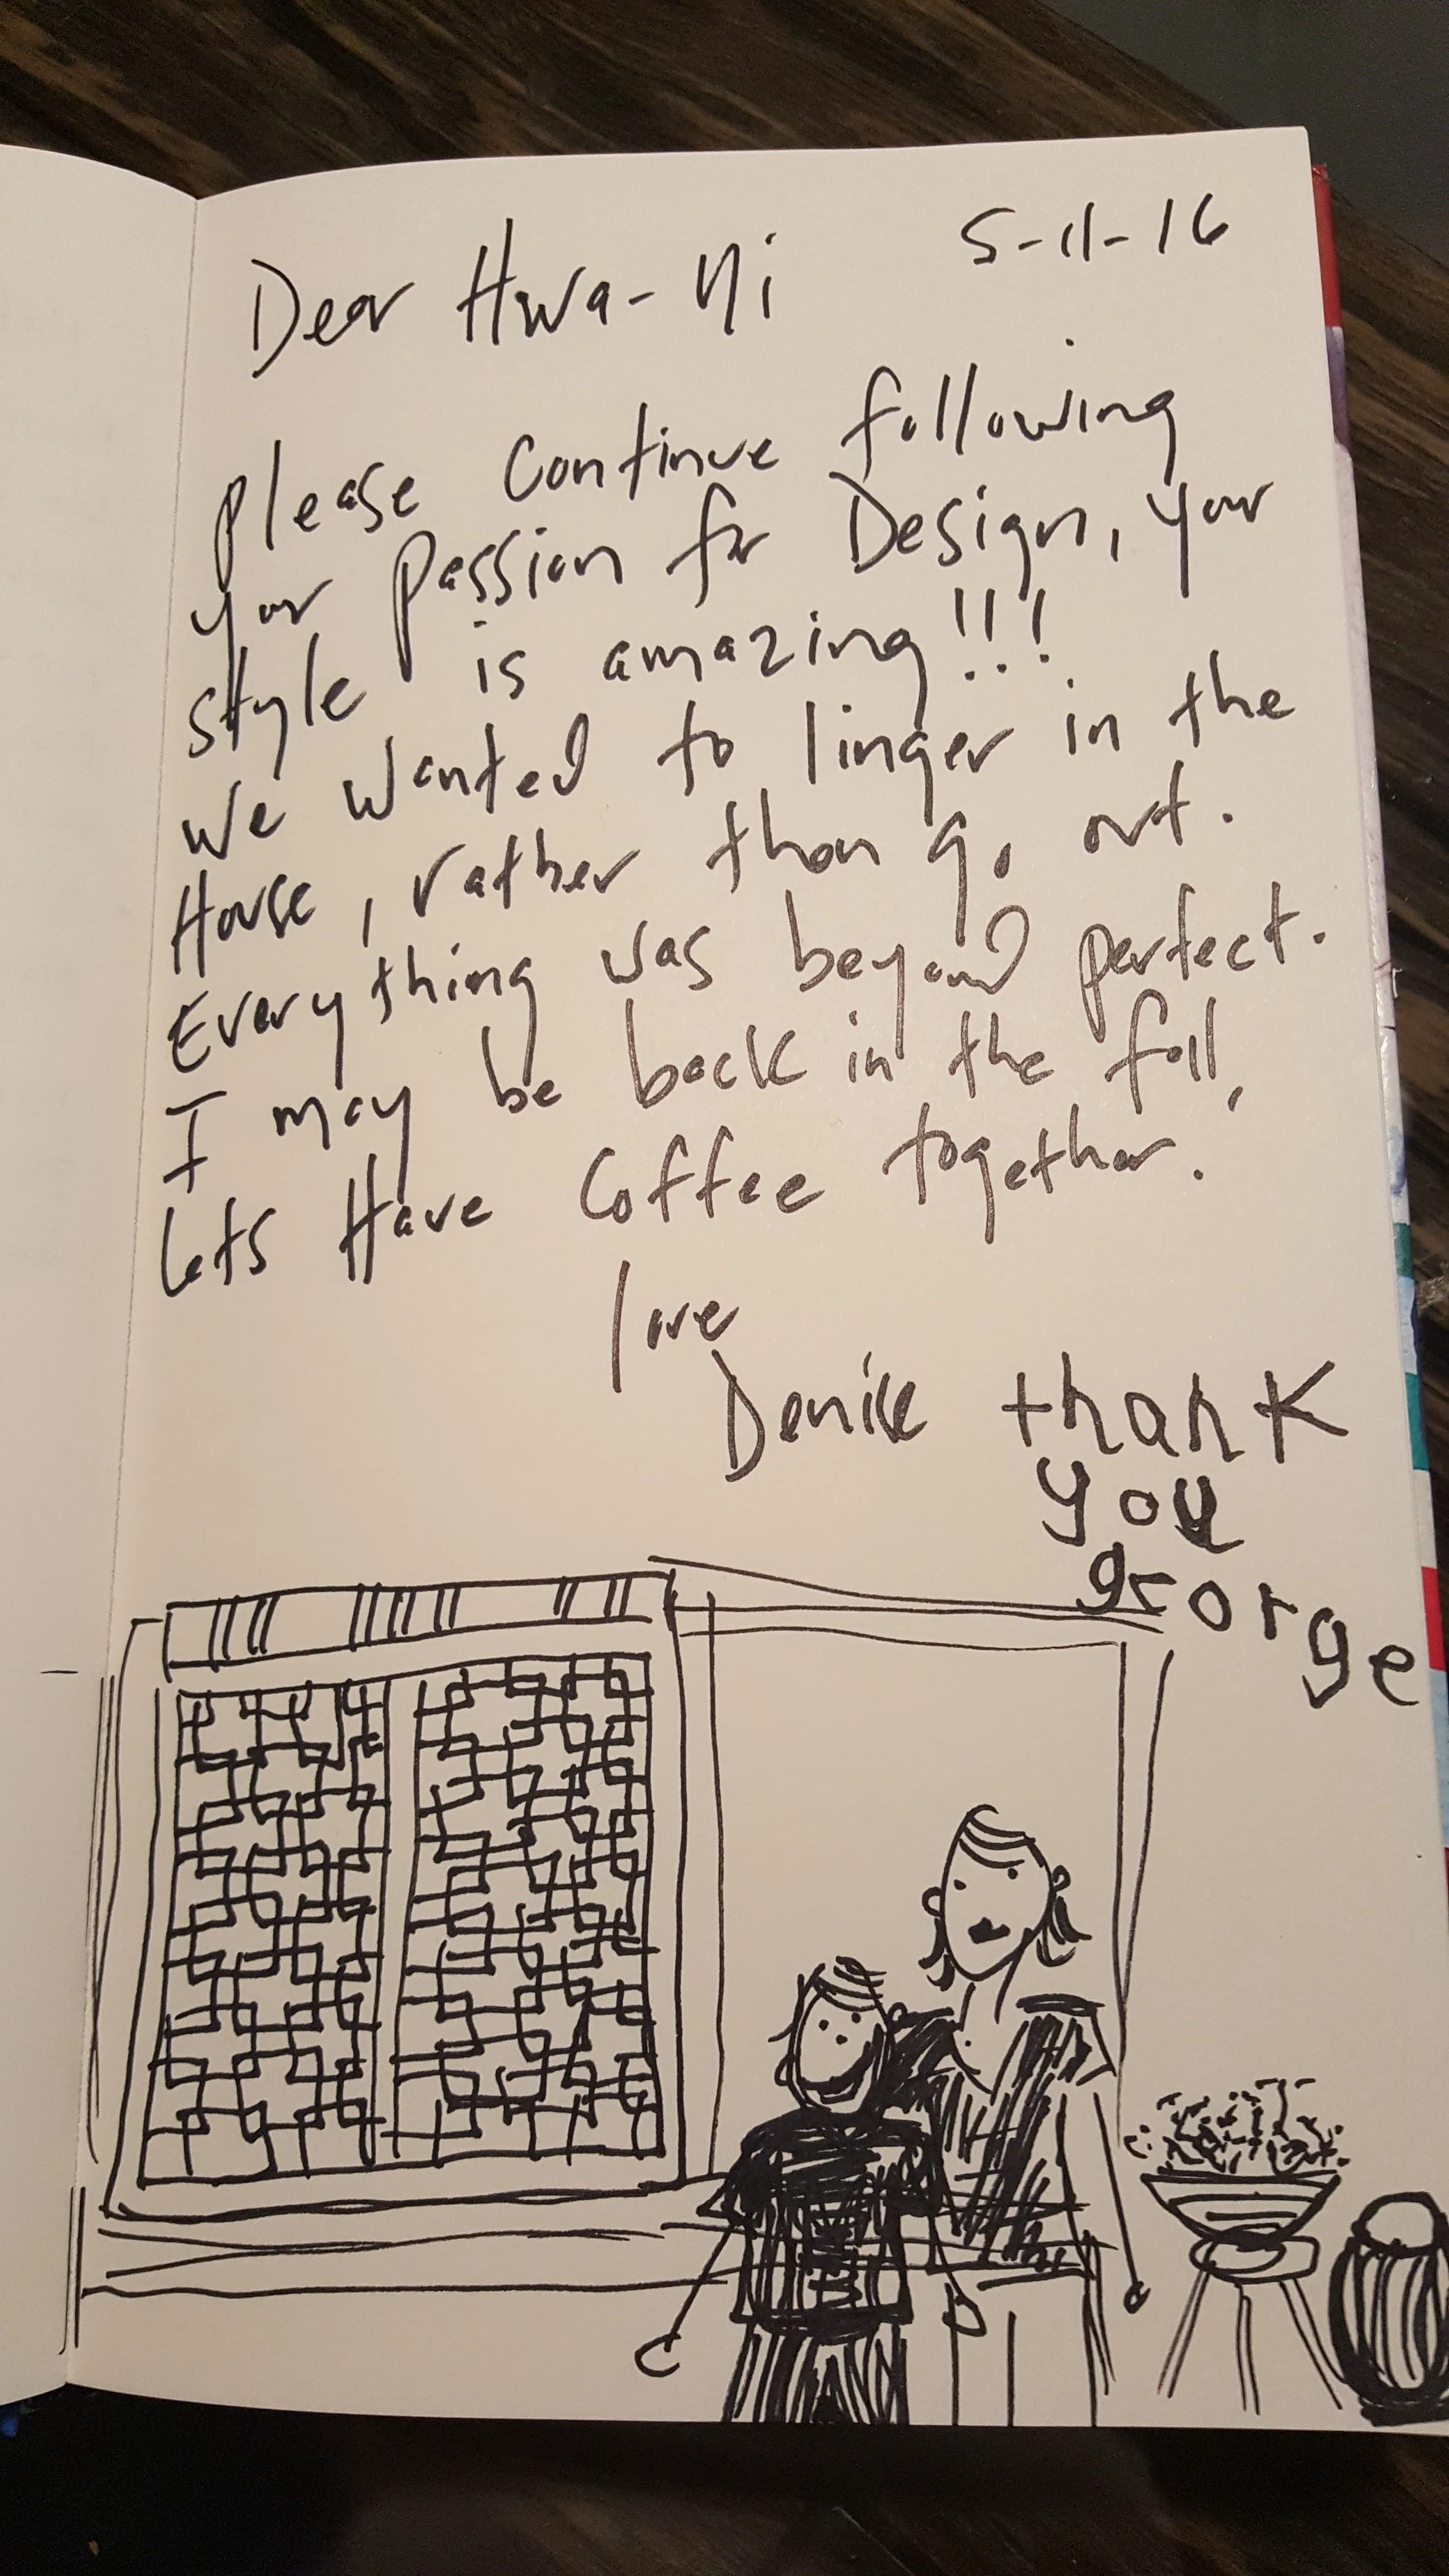 Dear Hwa-Ni 5-11-16
please continue following
your passion for Design, your
style is amazing!!!
We wanted to linger in the
House, rather than go out.
Everything was beyond perfect.
I may be back in the fall,
lets Have coffee together.
love
Denise thank
you
george